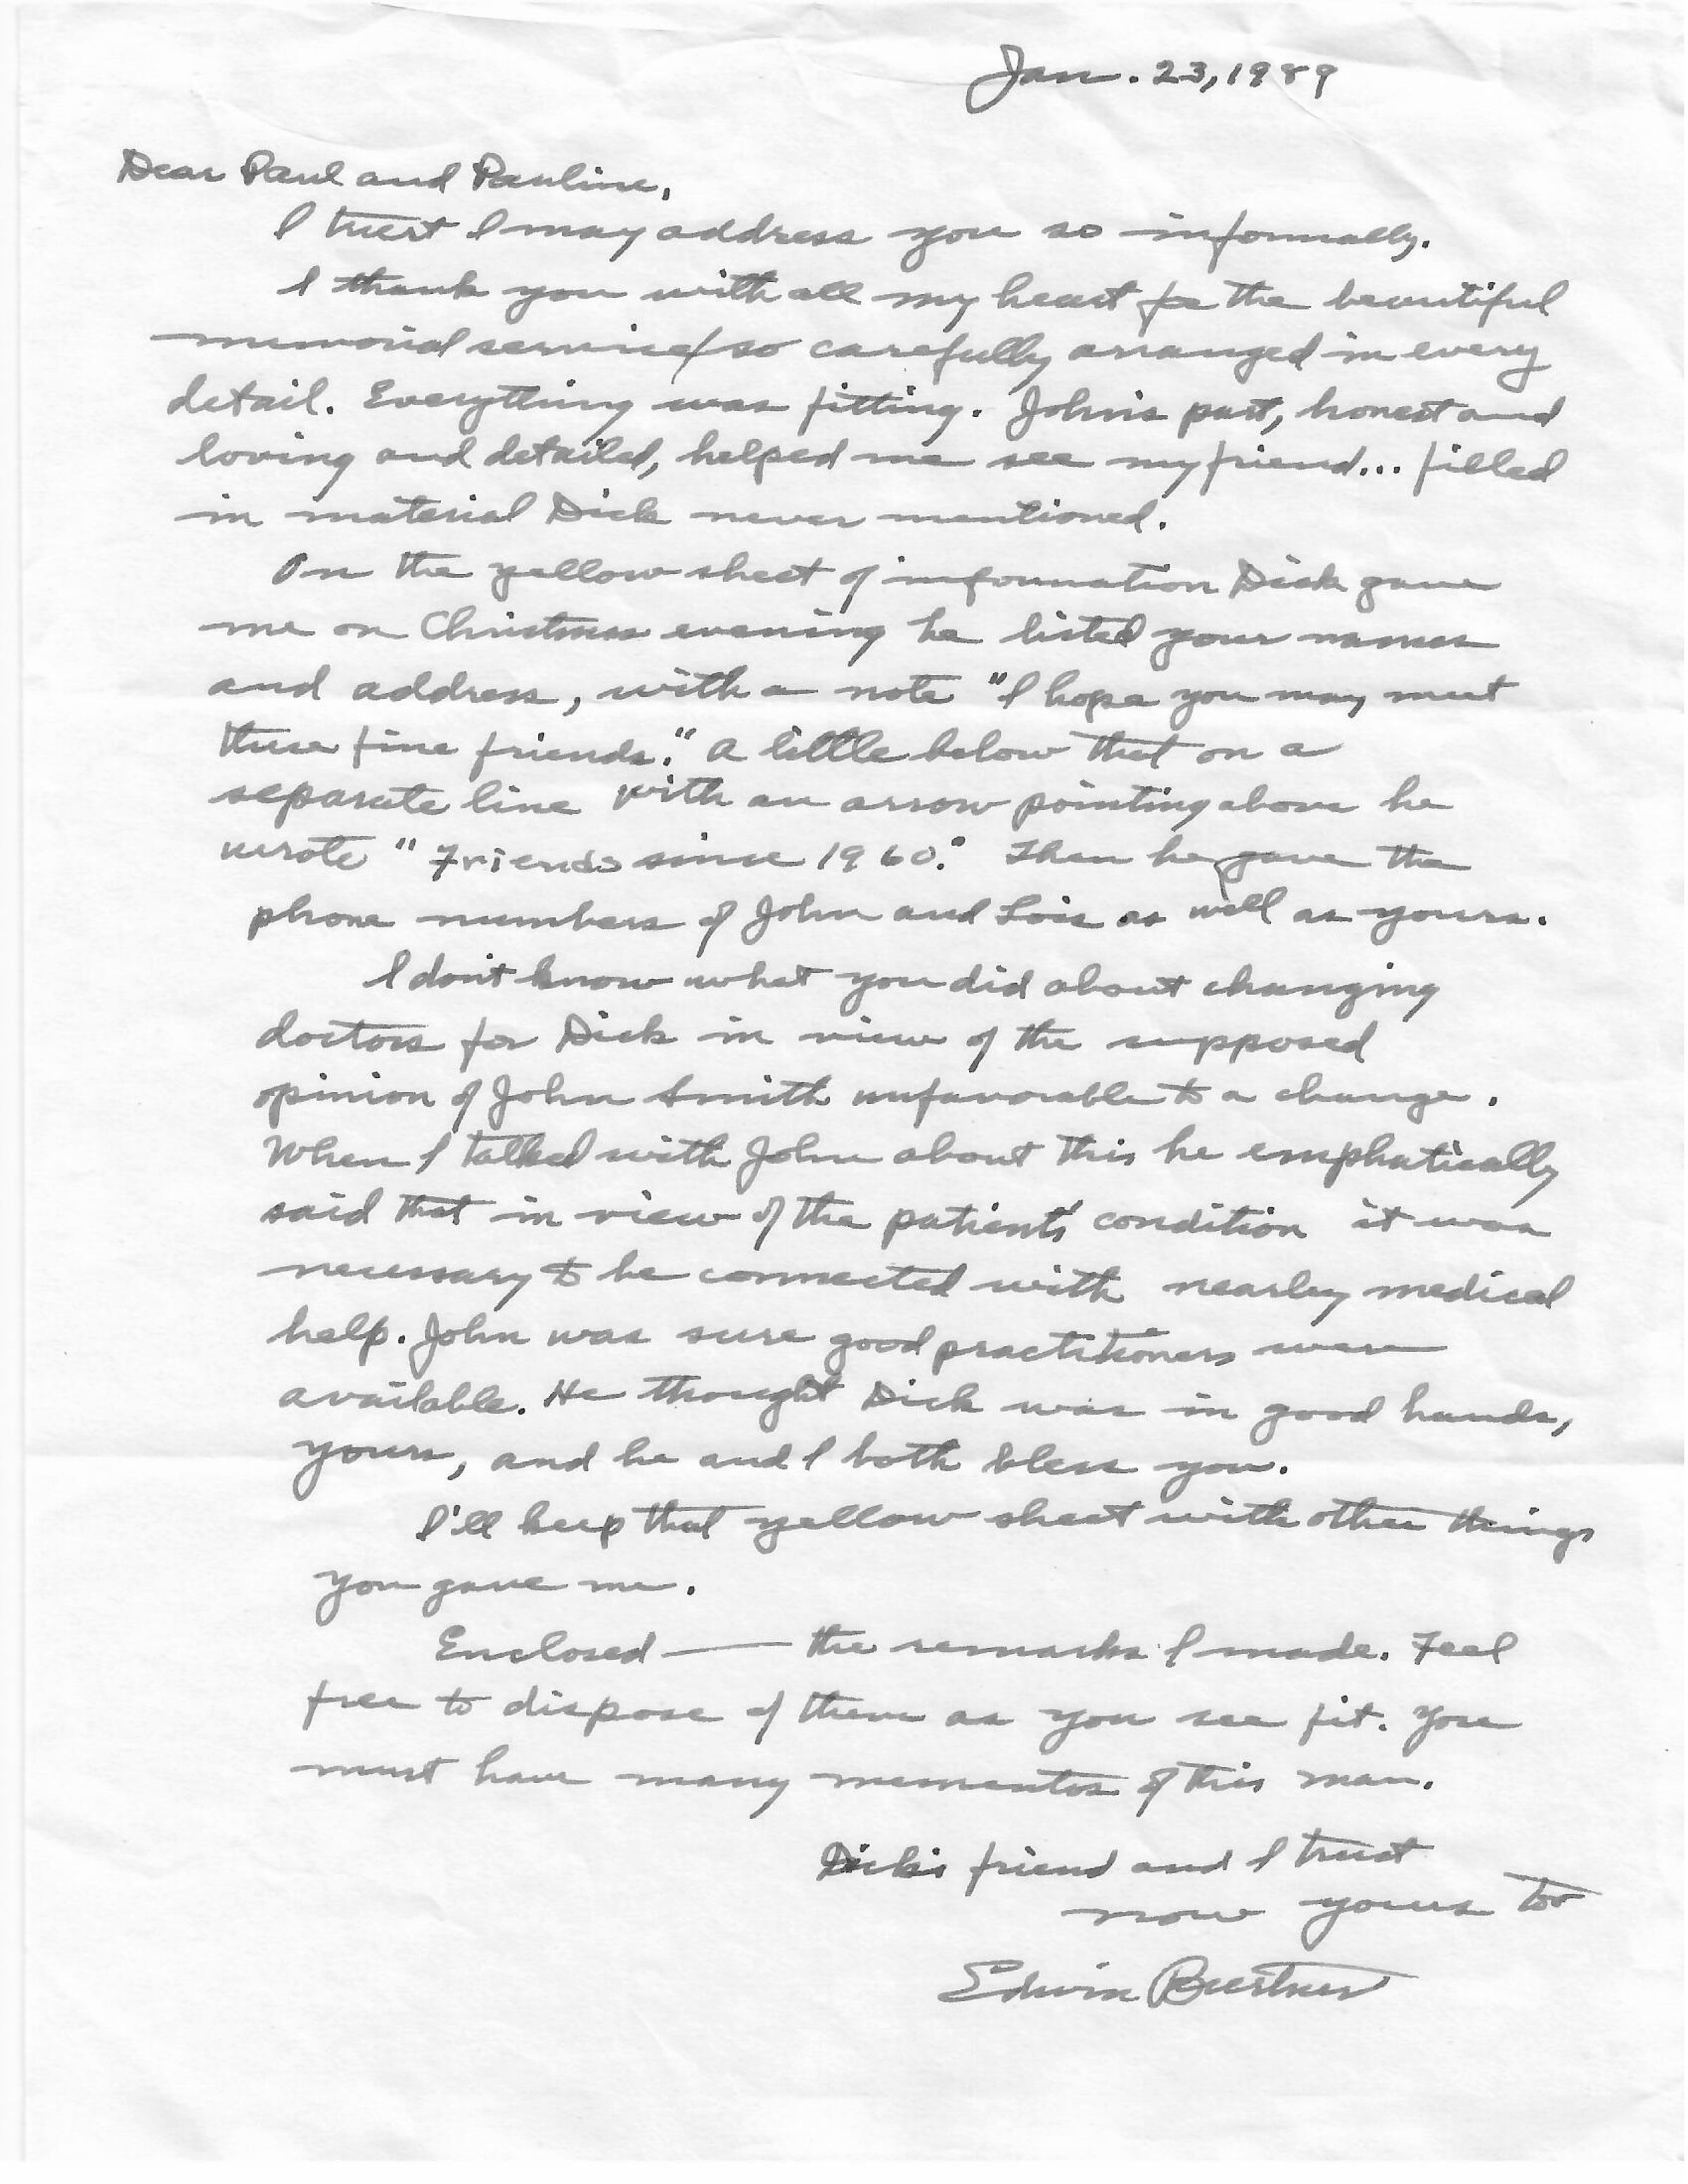 Jan. 23, 1989
Dear Paul and Pauline,
I trust I may address you so informally.
I thank you with all my heart for the beautiful
memorial service/so carefully arranged in every
detail. Everything was fitting. John's part, honest and
loving and detailed, helped me see my friend... filled
in material Dick never mentioned.
On the yellow sheet of information Dick gave
me on Christmas evening he listed your names
and address, with a note "I hope you may meet
these fine friends." A little below that on a
separate line with an arrow pointing above he
wrote "Friends since 1960." Then he gave the
phone numbers of John and Lois as well as yours.
I don't know what you did about changing
doctors for Dick in view of the supposed
opinion of John Smith unfavorable to a change.
When I talked with John about this he emphatically
said that in view of the patient's condition it was
necessary to be connected with nearby medical
help. John was sure good practitioners were
available. He thought Dick was in good hands,
yours, and he and I both bless you.
I'll keep that yellow sheet with other things
you gave me.
Enclosed — the remarks I made. Feel
free to dispose of them as you see fit. You
must have many mementos of this man.
Dick's friend and I trust
now yours too
Edwin